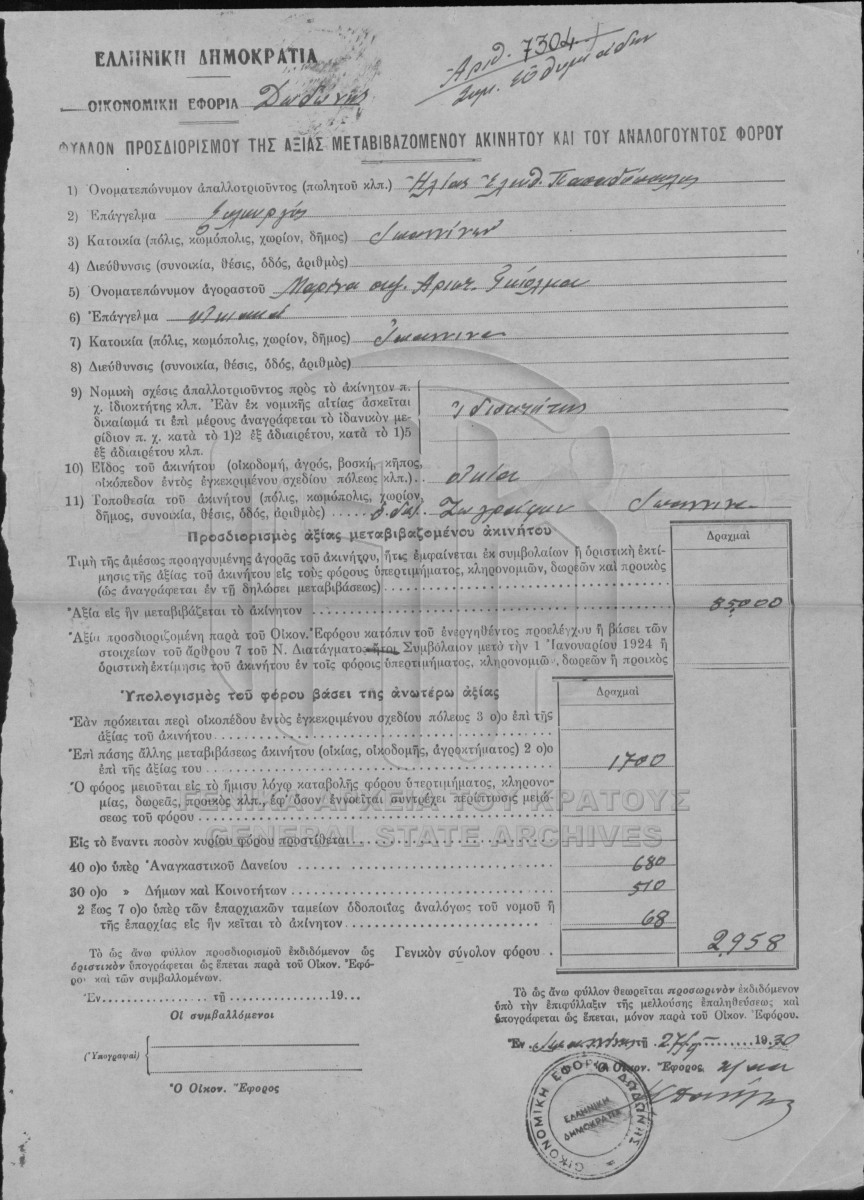 ΕΛΛΗΝΙΚΗ ΔΗΜΟΚΡΑΤΙΑ
Ἀριθ. 7304
ΟΙΚΟΝΟΜΙΚΗ ΕΦΟΡΙΑ Δωδώνης
ΦΥΛΛΟΝ ΠΡΟΣΔΙΟΡΙΣΜΟΥ ΤΗΣ ΑΞΙΑΣ ΜΕΤΑΒΙΒΑΖΟΜΕΝΟΥ ΑΚΙΝΗΤΟΥ ΚΑΙ ΤΟΥ ΑΝΑΛΟΓΟΥΝΤΟΣ ΦΟΡΟΥ
1) Ὀνοματεπώνυμον ἀπαλλοτριοῦντος (πωλητοῦ κλπ.) Ἠλίας Ἐλευθ. Παπαδόπουλος
2) Ἐπάγγελμα ξυλουργός
3) Κατοικία (πόλις, κωμόπολις, χωρίον, δῆμος) Ἰωαννίνων
4) Διεύθυνσις (συνοικία, θέσις, ὁδός, ἀριθμὸς)
5) Ὀνοματεπώνυμον ἀγοραστοῦ Μαρίνα συζ. Αριστ.
6) Ἐπάγγελμα οἰκιακά
7) Κατοικία (πόλις, κωμόπολις, χωρίον, δῆμος) Ἰωάννινα
8) Διεύθυνσις (συνοικία, θέσις, ὁδός, ἀριθμὸς)
9) Νομικὴ σχέσις ἀπαλλοτριοῦντος πρὸς τὸ ἀκίνητον π.
χ. ἰδιοκτήτης κλπ. Ἐὰν ἐκ νομικῆς αἰτίας ἀσκεῖται
δικαίωμά τι ἐπὶ μέρους ἀναγράφεται τὸ ἰδανικὸν με-
ρίδιον π. χ. κατὰ τὸ 1)2 ἐξ ἀδιαιρέτου, κατὰ τὸ 1)5
ἐξ ἀδιαιρέτου κλπ.
ἰδιοκτήτης
10) Εἶδος τοῦ ἀκινήτου (οἰκοδομή, ἀγρός, βοσκή, κῆπος,
οἰκόπεδον ἐντὸς ἐγκεκριμένου σχεδίου πόλεως κλπ.) οἰκία
11) Τοποθεσία τοῦ ἀκινήτου (πόλις, κωμόπολις, χωρίον,
δῆμος, συνοικία, θέσις, ὁδός, ἀριθμὸς) Ζωγράφου Ἰωάννινα
Προσδιορισμὸς ἀξίας μεταβιβαζομένου ἀκινήτου
Δραχμαὶ
Τιμὴ τῆς ἀμέσως προηγουμένης ἀγορᾶς τοῦ ἀκινήτου, ἥτις ἐμφαίνεται ἐκ συμβολαίων ἢ ὁριστικὴ ἐκτί-
μησις τῆς ἀξίας τοῦ ἀκινήτου εἰς τοὺς φόρους ὑπερτιμήματος, κληρονομιῶν, δωρεῶν καὶ προικὸς
(ὡς ἀναγράφεται ἐν τῇ δηλώσει μεταβιβάσεως)
Ἀξία εἰς ἣν μεταβιβάζεται τὸ ἀκίνητον 85000
Ἀξία προσδιοριζομένη παρὰ τοῦ Οἰκον. Ἐφόρου κατόπιν τοῦ ἐνεργηθέντος προελέγχου ἢ βάσει τῶν
στοιχείων τοῦ ἄρθρου 7 τοῦ Ν. Διατάγματος ἤτοι Συμβόλαιον μετὸ τὴν 1 Ἰανουαρίου 1924 ἢ
ὁριστικὴ ἐκτίμησις τοῦ ἀκινήτου ἐν τοῖς φόροις ὑπερτιμήματος, κληρονομιῶν, δωρεῶν ἢ προικὸς
Ὑπολογισμὸς τοῦ φόρου βάσει τῆς ἀνωτέρω ἀξίας
Δραχμαὶ
Ἐὰν πρόκειται περὶ οἰκοπέδου ἐντὸς ἐγκεκριμένου σχεδίου πόλεως 3 ο)ο ἐπὶ τῆς
ἀξίας τοῦ ἀκινήτου
Ἐπὶ πάσης ἄλλης μεταβιβάσεως ἀκινήτου (οἰκίας, οἰκοδομῆς, ἀγροκτήματος) 2 ο)ο
ἐπὶ τῆς ἀξίας του 1700
Ὁ φόρος μειοῦται εἰς τὸ ἥμισυ λόγῳ καταβολῆς φόρου ὑπερτιμήματος, κληρονο-
μίας, δωρεᾶς, προικὸς κλπ., ἐφ' ὅσον ἐννοεῖται συντρέχει περίπτωσις μειώ-
σεως τοῦ φόρου
ΓΕΝΙΚΑ ΑΡΧΕΙΑ ΤΟΥ ΚΡΑΤΟΥΣ
GENERAL STATE ARCHIVES
Εἰς τὸ ἔναντι ποσὸν κυρίου φόρου προστίθεται
40 ο)ο ὑπὲρ Ἀναγκαστικοῦ Δανείου 680
30 ο)ο » Δήμων καὶ Κοινοτήτων 510
2 ἕως 7 ο)ο ὑπὲρ τῶν ἐπαρχιακῶν ταμείων ὁδοποιΐας ἀναλόγως τοῦ νομοῦ ἢ
τῆς ἐπαρχίας εἰς ἣν κεῖται τὸ ἀκίνητον 68
Γενικὸν σύνολον φόρου 2958
Τὸ ὡς ἄνω φύλλον προσδιορισμοῦ ἐκδιδόμενον ὡς
ὁριστικὸν ὑπογράφεται ὡς ἕπεται παρὰ τοῦ Οἰκον. Ἐφό-
ρου καὶ τῶν συμβαλλομένων.
Ἐν τῇ 19
Οἱ συμβαλλόμενοι
(Ὑπογραφαὶ)
Ὁ Οἰκον. Ἔφορος
Τὸ ὡς ἄνω φύλλον θεωρεῖται προσωρινὸν ἐκδιδόμενον
ὑπὸ τὴν ἐπιφύλαξιν τῆς μελλούσης ἐπαληθεύσεως καὶ
ὑπογράφεται ὡς ἕπεται, μόνον παρὰ τοῦ Οἰκον. Ἐφόρου.
Ἐν Ἰωαννίνοις τῇ 27/9 1930
Ὁ Οἰκον. Ἔφορος
ΟΙΚΟΝΟΜΙΚΗ ΕΦΟΡΙΑ ΔΩΔΩΝΗΣ
ΕΛΛΗΝΙΚΗ
ΔΗΜΟΚΡΑΤΙΑ